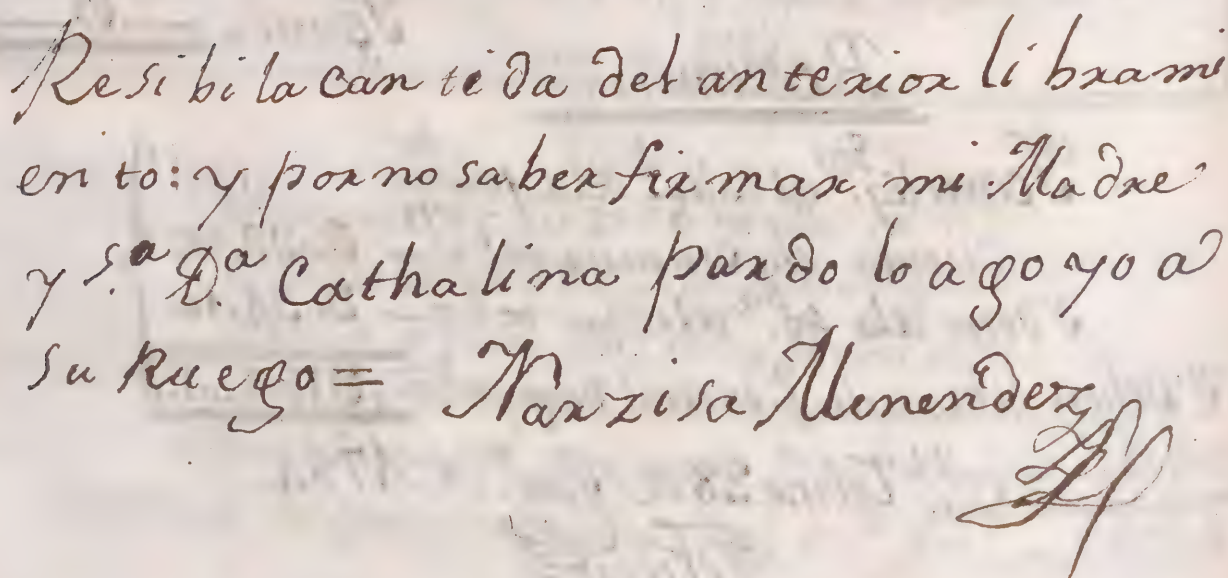 Resibi la cantida del anterior librami
ento: y por no saber firmar mi Madre
y S.ª D.ª Cathalina pardo lo ago yo a
su Ruego = Narzisa Menendez